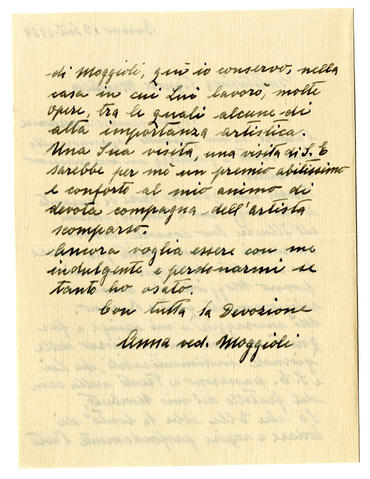 di Moggioli, quì io conservo, nella
casa in cui Lui lavorò, molte
opere, tra le quali alcune di
alta importanza artistica.
Una Sua visita, una visita di S. E
sarebbe per me un premio abilissimo
e conforto al mio animo di
devota compagna dell'artista
scomparso.
Ancora voglia essere con me
indulgente e perdonarmi se
tanto ho osato.
Con tutta la Devozione
Anna ved. Moggioli